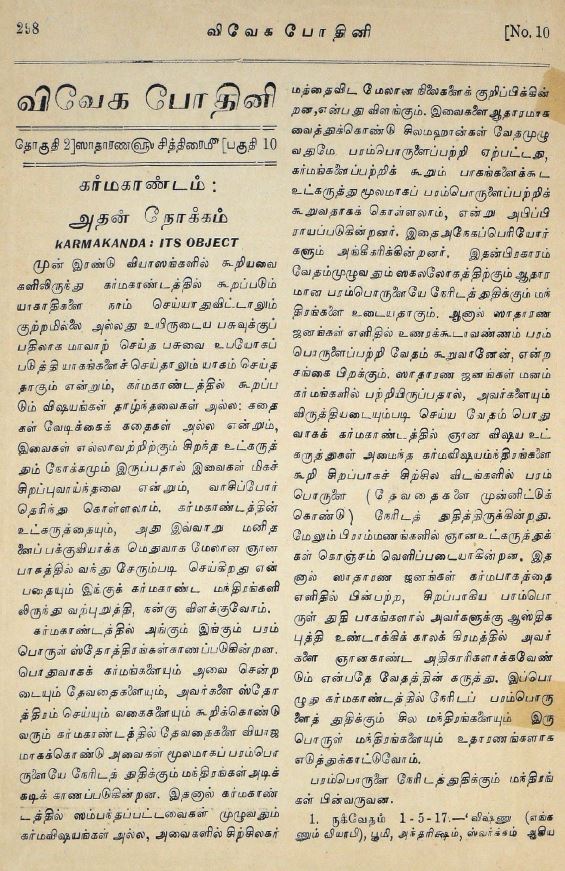 298
விவேக போதினி
[No. 10
விவேக போதினி
தொகுதி 2] ஸாதாரண௵ சித்திரை௴ [பகுதி 10
கர்மகாண்டம் :
அதன் நோக்கம்
KARMAKANDA : ITS OBJECT
முன் இரண்டு வியாஸங்களில் கூறியவை
களிலிருந்து கர்மகாண்டத்தில் கூறப்படும்
யாகாதிகளை நாம் செய்யாதுவிட்டாலும்
குற்றமில்லை அல்லது உயிருடைய பசுவுக்குப்
பதிலாக மாவாற் செய்த பசுவை உபயோகப்
படுத்தி யாகங்களைச் செய்தாலும் யாகம் செய்த
தாகும் என்றும், கர்மகாண்டத்தில் கூறப்ப
டும் விஷயங்கள் தாழ்ந்தவைகள் அல்ல: கதை
கள் வேடிக்கைக் கதைகள் அல்ல என்றும்,
இவைகள் எல்லாவற்றிற்கும் சிறந்த உட்கருத்
தும் நோக்கமும் இருப்பதால் இவைகள் மிகச்
சிறப்புவாய்ந்தவை என்றும், வாசிப்போர்
தெரிந்து கொள்ளலாம். கர்மகாண்டத்தின்
உட்கருத்தையும், அது இவ்வாறு மனித
னைப் பக்குவியாக்க மெதுவாக மேலான ஞான
பாகத்தில் வந்து சேரும்படி செய்கிறது என்
பதையும் இங்குக் கர்மகாண்ட மந்திரங்களி
லிருந்து வற்புறுத்தி, நன்கு விளக்குவோம்.
கர்மகாண்டத்தில் அங்கும் இங்கும் பரம்
பொருள் ஸ்தோத்திரங்கள் காணப்படுகின்றன.
பொதுவாகக் கர்மங்களையும் அவை சென்ற
டையும் தேவதைகளையும், அவர்களை ஸ்தோ
த்திரம் செய்யும் வகைகளையும் கூறிக்கொண்டு
வரும் கர்மகாண்டத்தில் தேவதைகளை வியாஜ
மாகக்கொண்டு அவைகள் மூலமாகப் பரம்பொ
ருளையே நேரிடத் துதிக்கும் மந்திரங்கள் அடிக்
கடிக் காணப்படுகின்றன. இதனால் கர்மகாண்
டத்தில் ஸம்பந்தப்பட்டவைகள் முழுவதும்
கர்மவிஷயங்கள் அல்ல, அவைகளில் சிற்சிலகர்
மத்தைவிட மேலான நிலைகளைக் குறிப்பிக்கின்
றன, என்பது விளங்கும். இவைகளை ஆதாரமாக
வைத்துக்கொண்டு சிலமஹான்கள் வேதமுழு
வதுமே பரம்பொருளைப்பற்றி ஏற்பட்டது,
கர்மங்களைப்பற்றிக் கூறும் பாகங்களைக்கூட
உட்கருத்து மூலமாகப் பரம்பொருளைப்பற்றிக்
கூறுவதாகக் கொள்ளலாம், என்று அபிப்பி
ராயப்படுகின்றனர். இதை அநேகப்பெரியோர்
களும் அங்கீகரிக்கின்றனர். இதன்பிரகாரம்
வேதம்முழுவதும் ஸகலலோகத்திற்கும் ஆதார
மான பரம்பொருளையே நேரிடத் துதிக்கும் மந்
திரங்களை உடையதாகும். ஆனால் ஸாதாரண
ஜனங்கள் எளிதில் உணரக்கூடாவண்ணம் பரம்
பொருளைப்பற்றி வேதம் கூறுவானேன், என்ற
சங்கை பிறக்கும். ஸாதாரண ஜனங்கள் மனம்
கர்மங்களில் பற்றியிருப்பதால், அவர்களையும்
விருத்தியடையும்படி செய்ய வேதம் பொது
வாகக் கர்மகாண்டத்தில் ஞான விஷய உட்
கருத்துகள் அமைந்த கர்மவிஷயம்ந்திரங்களை
கூறி சிறப்பாகச் சிற்சில விடங்களில் பரம்
பொருளை (தேவதைகளை முன்னிட்டுக்
கொண்டு) நேரிடத் துதித்திருக்கின்றது.
மேலும் பிராம்மணங்களில் ஞானஉட்கருத்துக்
கள் கொஞ்சம் வெளிப்படையாகின்றன. இத
னால் ஸாதாரண ஜனங்கள் கர்மபாகத்தை
எளிதில் பின்பற்ற, சிறப்பாகிய பரம்பொ
ருள் துதி பாகங்களால் அவர்களுக்கு ஆஸ்திக
புத்தி உண்டாக்கிக் காலக் கிரமத்தில் அவர்
களை ஞானகாண்ட அதிகாரிகளாக்கவேண்
டும் என்பதே வேதத்தின் கருத்து. இப்பொ
ழுது கர்மகாண்டத்தில் நேரிடப் பரம்பொரு
ளைத் துதிக்கும் சில மந்திரங்களையும் இரு
பொருள் மந்திரங்களையும் உதாரணங்களாக
எடுத்துக்காட்டுவோம்.
பரம்பொருளை நேரிடத்துதிக்கும் மந்திரங்
கள் பின்வருவன.
1. ருக்வேதம் 1-5-17.—'விஷ்ணு (எங்க
ணும் வியாபி), பூமி, அந்தரிக்ஷம், ஸ்வர்க்கம் ஆகிய